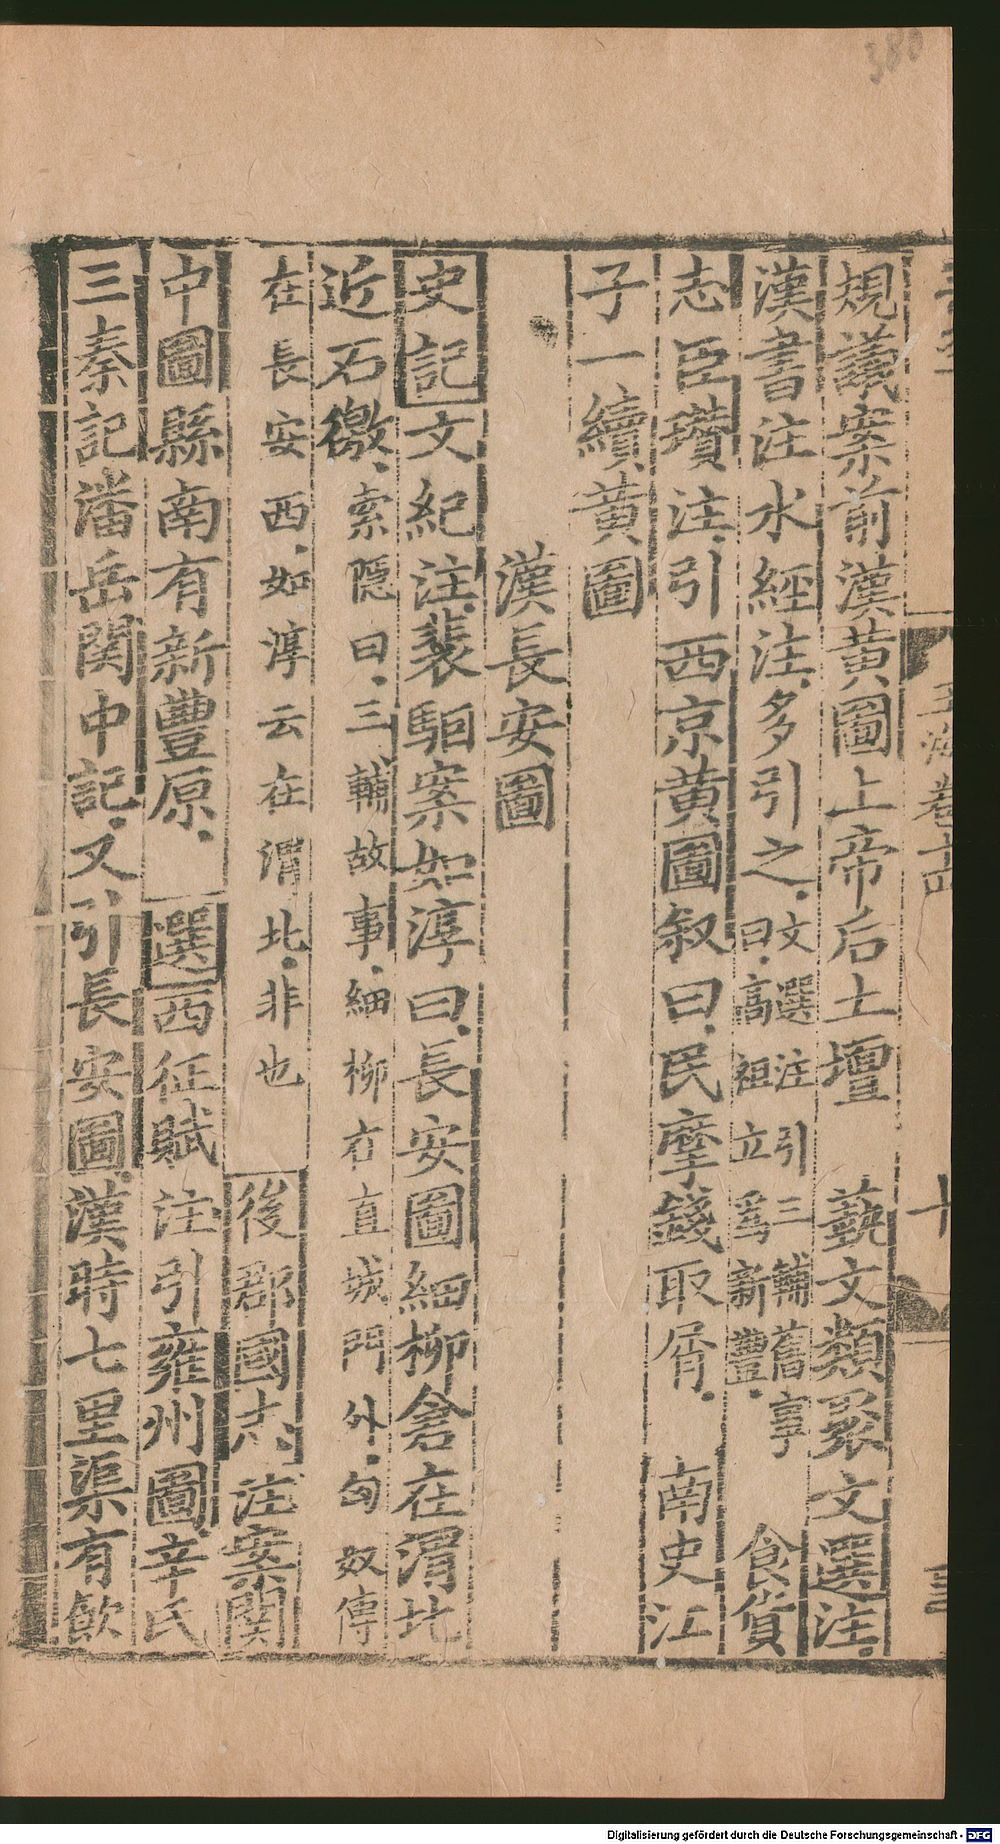 規議案前漢黄圖上帝后土壇　藝文類聚文選注
漢書注水經注多引之文選注引三輔舊事曰高祖立爲新豐　食貨
志臣瓚注引西京黄圖叙曰民摩錢取屑　南史江
子一續黄圖
漢長安圖
史記文紀注裴駰案如淳曰長安圖細柳倉在渭北
近石徼索隱曰三輔故事細柳在直城門外匈奴傳
在長安西如淳云在渭北非也　後郡國志注案関
中圖縣南有新豐原　選西征賦注引雍州圖辛氏
三秦記潘岳関中記又引長安圖漢時七里渠有飲
380
Digitalisierung gefördert durch die Deutsche Forschungsgemeinschaft - DFG